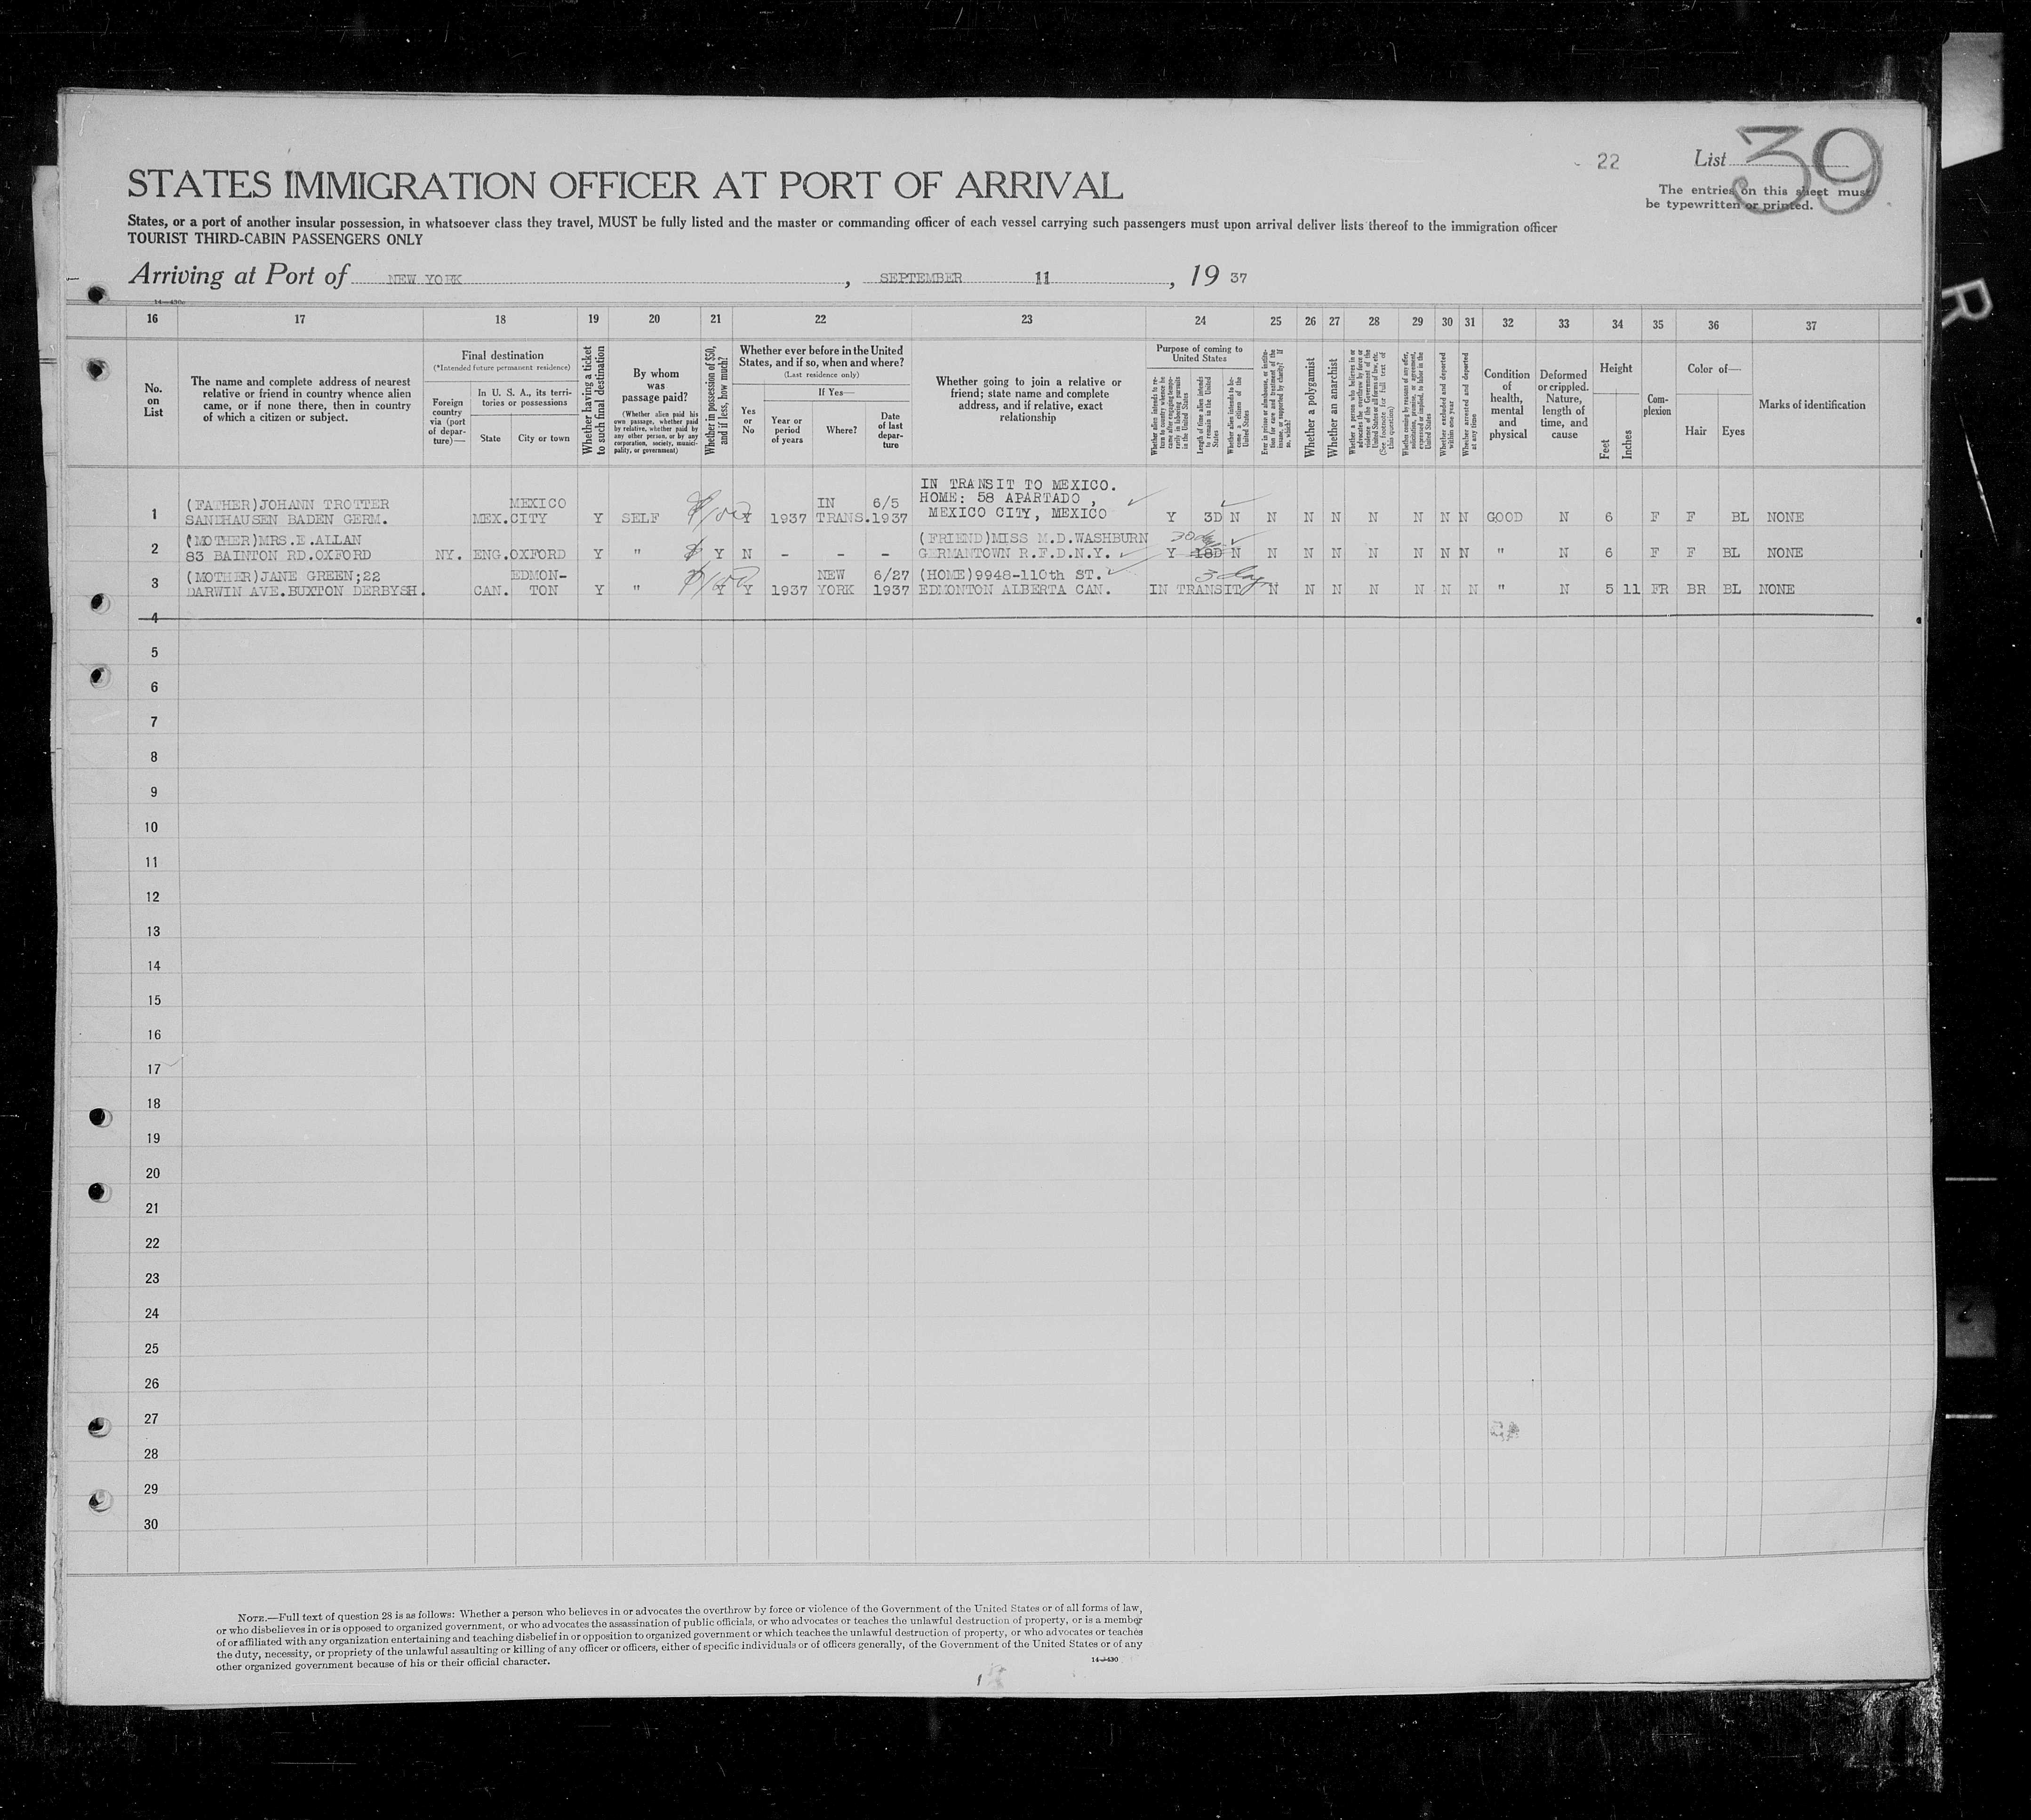 22
List 39
The entries on this sheet must
be typewritten or printed.
STATES IMMIGRATION OFFICER AT PORT OF ARRIVAL
States, or a port of another insular possession, in whatsoever class they travel, MUST be fully listed and the master or commanding officer of each vessel carrying such passengers must upon arrival deliver lists thereof to the immigration officer
TOURIST THIRD-CABIN PASSENGERS ONLY
Arriving at Port of NEW YORK, SEPTEMBER 11, 19 37
14—430c
16 17 18 19 20 21 22 23 24 25 26 27 28 29 30 31 32 33 34 35 36 37
No. on List
The name and complete address of nearest relative or friend in country whence alien came, or if none there, then in country of which a citizen or subject.
Final destination
(*Intended future permanent residence)
Foreign country via (port of departure)—
In U. S. A., its territories or possessions
State
City or town
Whether having a ticket to such final destination
By whom was passage paid?
(Whether alien paid his own passage, whether paid by relative, whether paid by any other person, or by any corporation, society, municipality, or government)
Whether in possession of $50, and if less, how much?
Whether ever before in the United States, and if so, when and where?
(Last residence only)
Yes or No
If Yes—
Year or period of years
Where?
Date of last departure
Whether going to join a relative or friend; state name and complete address, and if relative, exact relationship
Purpose of coming to United States
Whether alien intends to return to country whence he came after engaging temporarily in laboring pursuits in the United States
Length of time alien intends to remain in the United States
Whether alien intends to become a citizen of the United States
Ever in prison or almshouse, or institution for care and treatment of the insane, or supported by charity? If so, which?
Whether a polygamist
Whether an anarchist
Whether a person who believes in or advocates the overthrow by force or violence of the Government of the United States or all forms of law, etc. (See footnote for full text of this question)
Whether coming by reasons of any offer, solicitation, promise, or agreement, expressed or implied, to labor in the United States
Whether excluded and deported within one year
Whether arrested and deported at any time
Condition of health, mental and physical
Deformed or crippled. Nature, length of time, and cause
Height
Feet
Inches
Complexion
Color of—
Hair
Eyes
Marks of identification
1 (FATHER)JOHANN TROTTER SANDHAUSEN BADEN GERM. MEX. MEXICO CITY Y SELF $100 Y 1937 IN TRANS. 6/5 1937 IN TRANSIT TO MEXICO. HOME: 58 APARTADO, MEXICO CITY, MEXICO Y 3D N N N N N N N N GOOD N 6 F F BL NONE
2 (MOTHER)MRS.E.ALLAN 83 BAINTON RD.OXFORD NY. ENG. OXFORD Y " $ Y N - - - (FRIEND)MISS M.D.WASHBURN GERMANTOWN R.F.D.N.Y. Y 18D N N N N N N N N " N 6 F F BL NONE
3 (MOTHER)JANE GREEN;22 DARWIN AVE.BUXTON DERBYSH. CAN. EDMONTON Y " $100 Y Y 1937 NEW YORK 6/27 1937 (HOME)9948-110th ST. EDMONTON ALBERTA CAN. IN TRANSIT 3 days N N N N N N N " N 5 11 FR BR BL NONE
4
5
6
7
8
9
10
11
12
13
14
15
16
17
18
19
20
21
22
23
24
25
26
27
28
29
30
NOTE.—Full text of question 28 is as follows: Whether a person who believes in or advocates the overthrow by force or violence of the Government of the United States or of all forms of law,
or who disbelieves in or is opposed to organized government, or who advocates the assassination of public officials, or who advocates or teaches the unlawful destruction of property, or is a member
of or affiliated with any organization entertaining and teaching disbelief in or opposition to organized government or which teaches the unlawful destruction of property, or who advocates or teaches
the duty, necessity, or propriety of the unlawful assaulting or killing of any officer or officers, either of specific individuals or of officers generally, of the Government of the United States or of any
other organized government because of his or their official character.
14—430